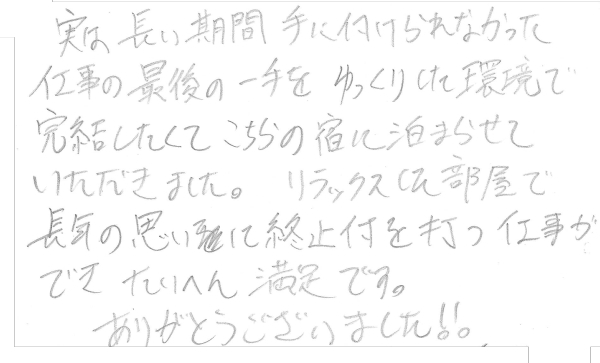 実は 長い期間 手に付けられなかった
仕事の最後の一手を ゆっくりした環境で
完結したくて こちらの宿に泊まらせて
いただきました。 リラックスした部屋で
長年の思いに終止付を打つ仕事が
でき たいへん 満足です。
ありがとうございました!!。